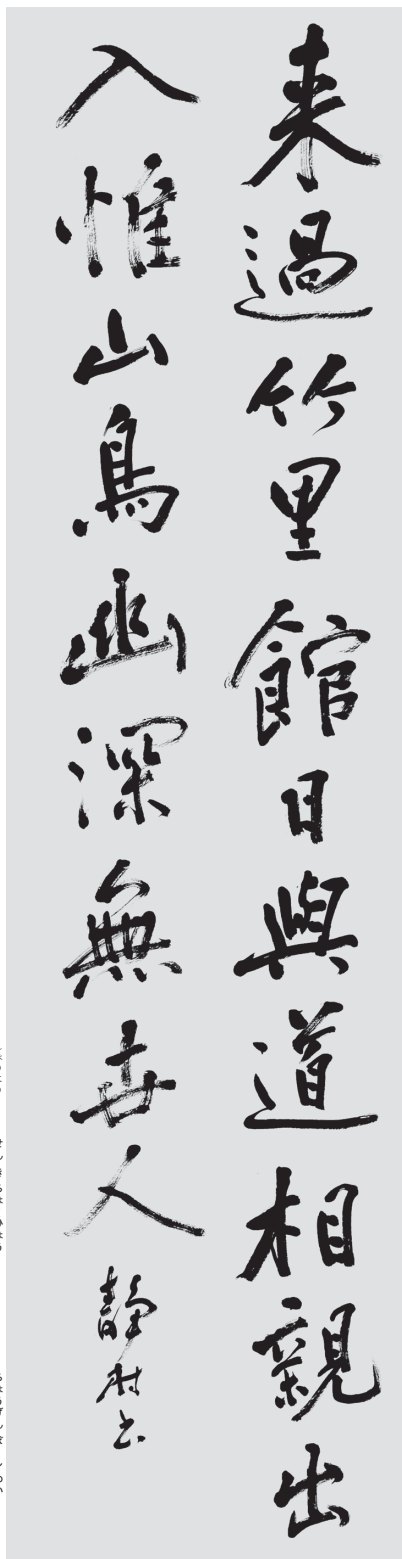 来過竹里館日與道相親出
入惟山鳥幽深無世人
静村书